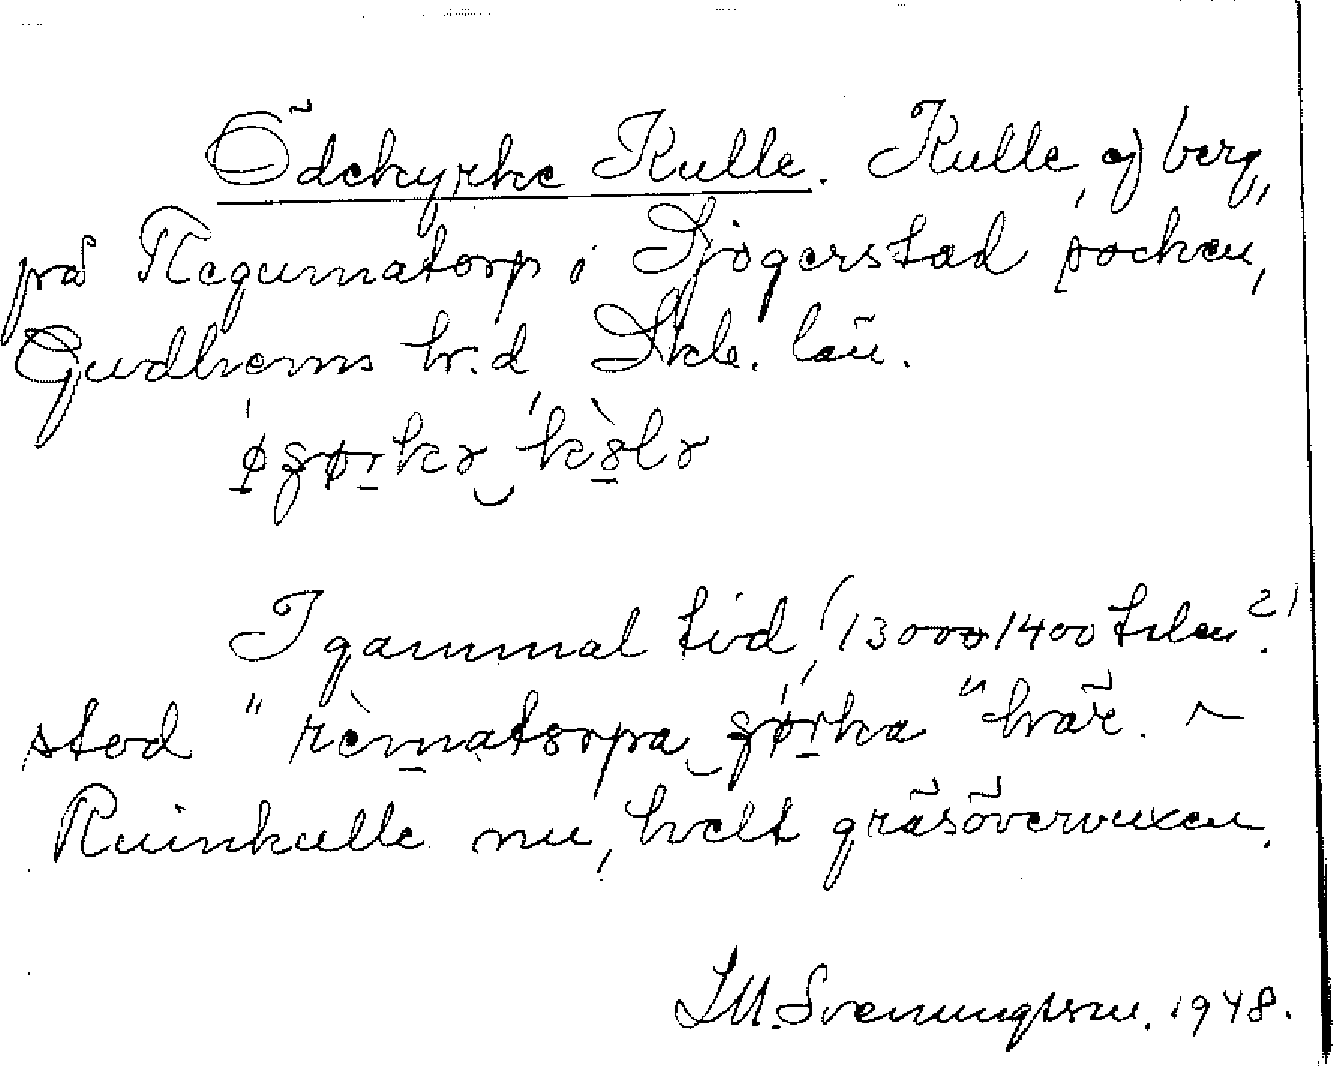 Ödekyrke Kulle. Kulle, ej berg,
på Regumatorp i Sjogerstad socken,
Gudhems hr.d, Skb. län.
I gammal tid, (1300 o 1400 talen?)
stod " " här. ~
Ruinkulle nu, helt gräsövervuxen.
S.M. Svenungsson. 1948.